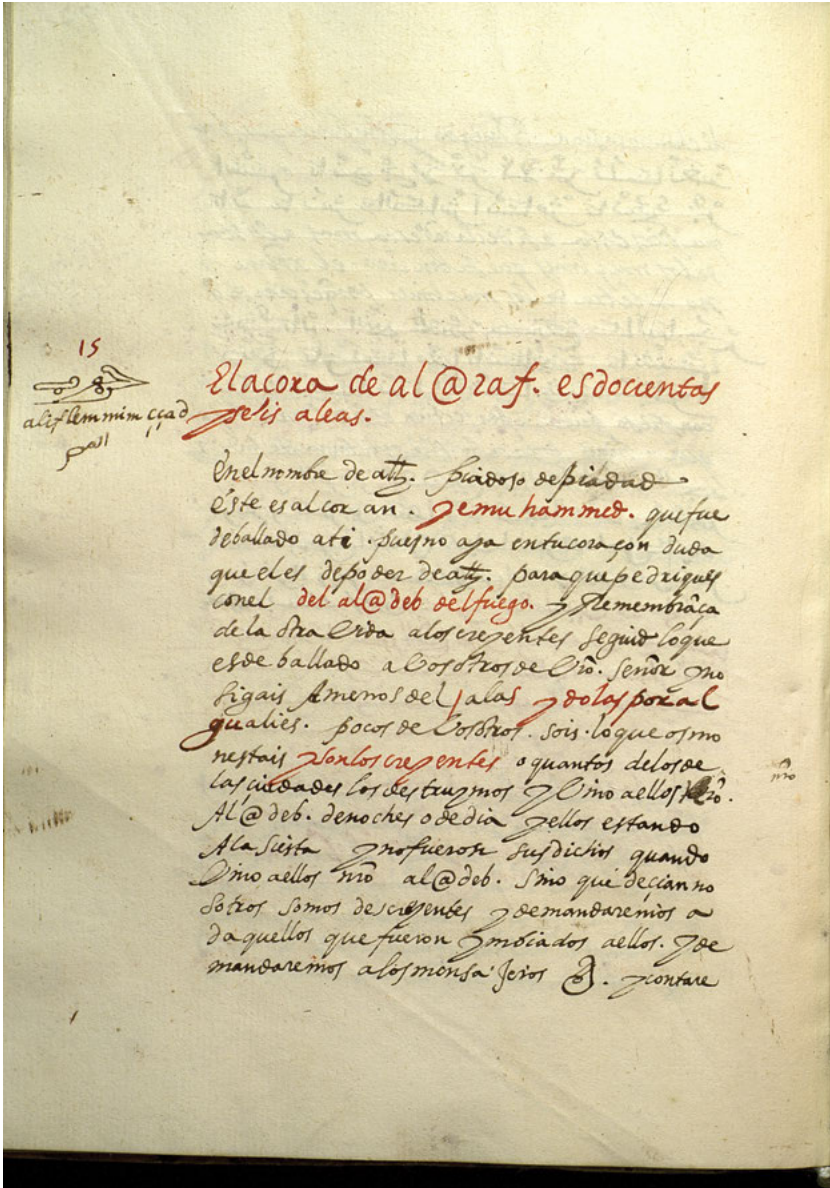 15
alif lemmim ççad
المص
El açora de al@raf. es docientas
yseis aleas.
Enel nombre de allh. piadoso depiadad
éste es alcoran. yemuhammed. quefue
deballado ati. puesno aya entucoraçon duda
queel es depoder deallh. paraquepedriques
conel del al@deb delfuego. yRemembrãça
dela otra Vida aloscreyentes seguid loque
esde ballado a Vosotrosde Vrõ. señor yno
sigais Amenosdel alas ydolas poral
gualies. pocosde Vosotros. sois. loque osmo
nestais ysonloscreyentes o quantos delosde
lasçiudades losdestruymos yVino aellos
nrõ
Al@deb. denoches odedia yellos estando
Ala siesta ynofueron susdichos quando
Vino aellos nrõ al@deb. sino que deçian no
sotros somos descreyentes ydemandaremos a
daquellos que fueron ynbiados aellos. yde
mandaremos alosmensajeros. ycontare